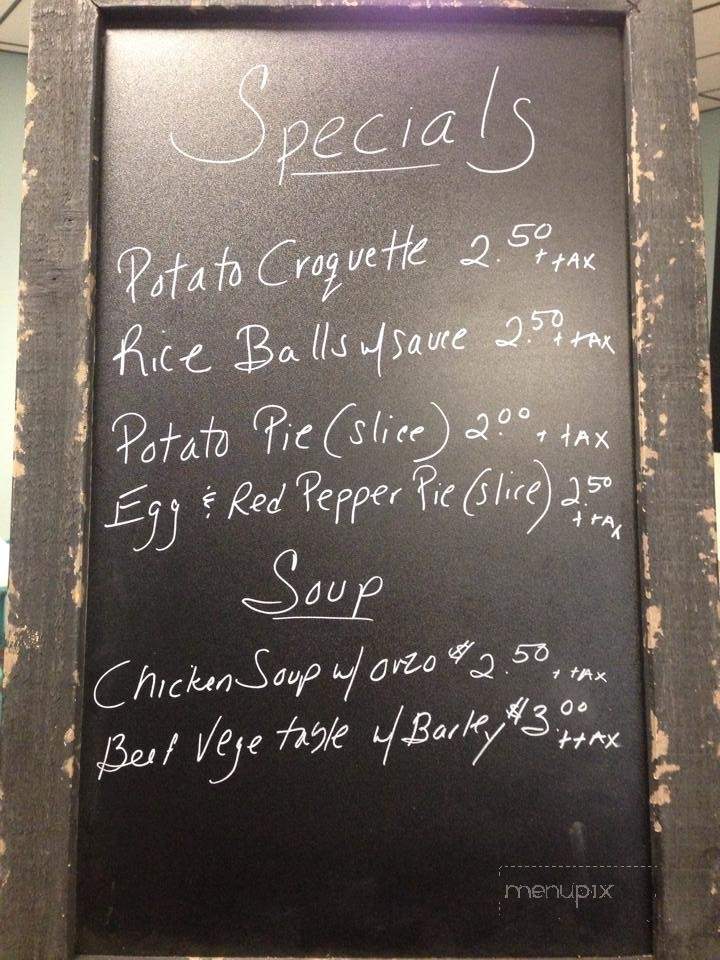 Specials
Potato Croquette 2.50 + tAX
Rice Balls w/sauce 2.50 + tAX
Potato Pie (slice) 2.00 + tAX
Egg & Red Pepper Pie (slice) 2.50 + tAX
Soup
Chicken Soup w/ orzo $2.50 + tAX
Beef Vegetable w/ Barley $3.00 + tAX
menupix